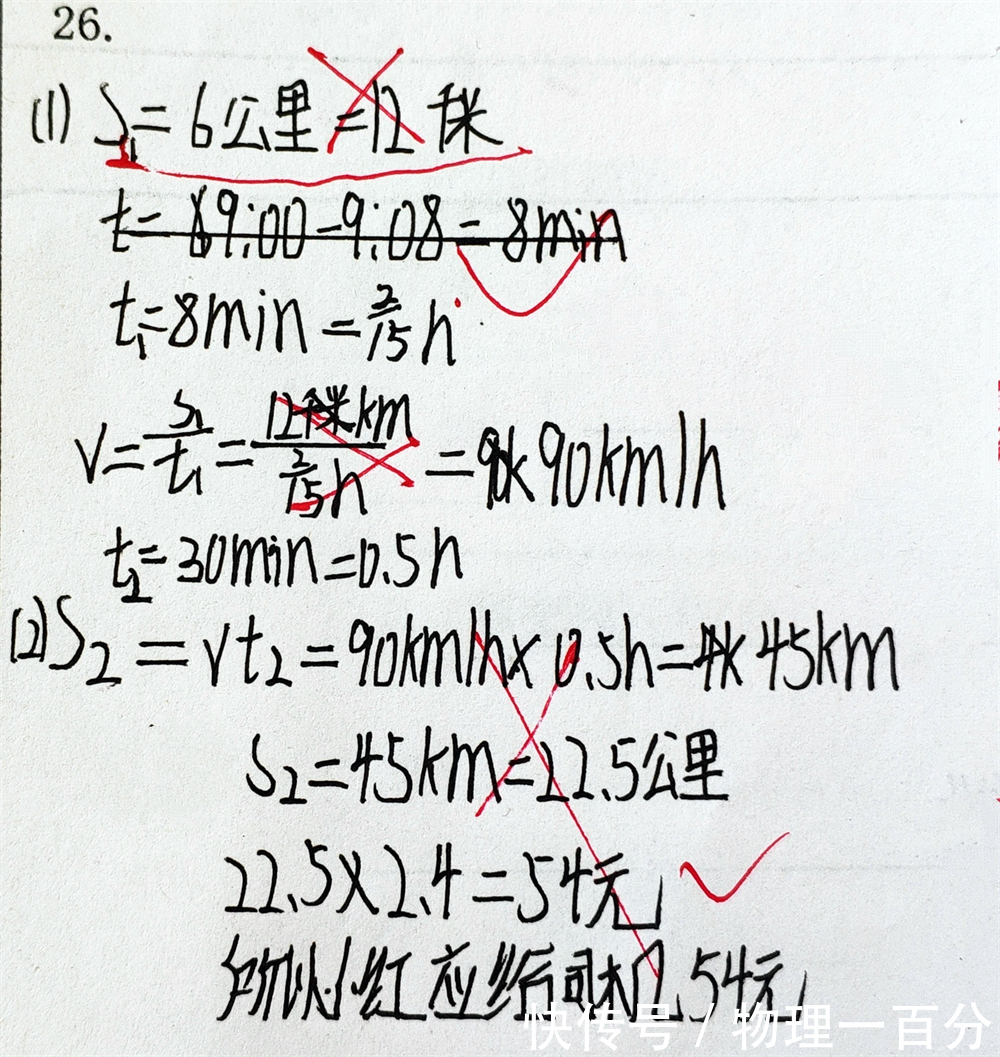 26.
(1) S₁=6公里=12千米
t=89:00-9:08=8min
t₁=8min=2/15h
V=S₁/t₁=12千米km/(2/15h)=90km/h
t₂=30min=0.5h
(2)S₂=Vt₂=90km/h×0.5h=45km
S₂=45km=22.5公里
22.5×2.4=54元
所以小红应给司机54元
快传号/物理一百分